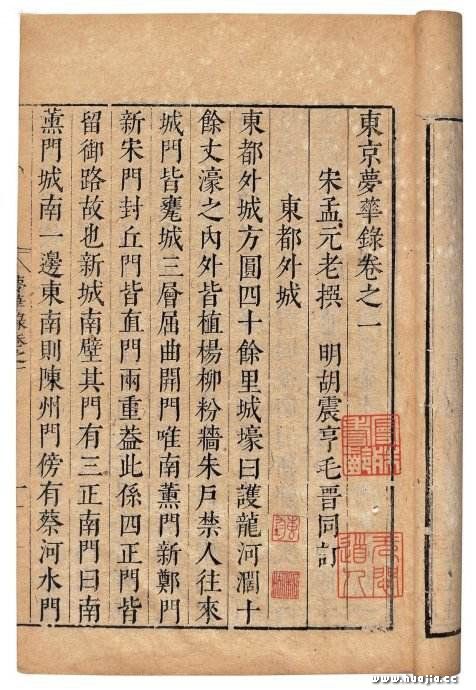 東京夢華錄卷之一
宋孟元老撰 明胡震亨毛晉同訂
東都外城
東都外城方圓四十餘里城壕曰護龍河濶十
餘丈濠之內外皆植楊柳粉牆朱戶禁人往來
城門皆甕城三層屈曲開門唯南薰門新鄭門
新宋門封丘門皆直門兩重葢此係四正門皆
留御路故也新城南壁其門有三正南門曰南
薰門城南一邊東南則陳州門傍有蔡河水門
夢華錄卷之一
一
www.huajia.cc